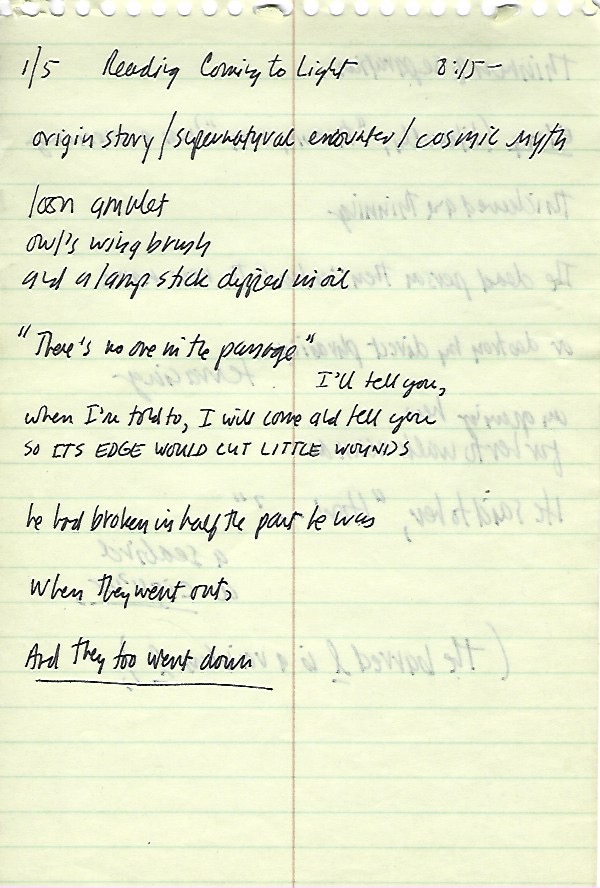 1/5 Reading Coming to Light 8:15–
origin story / supernatural encounter / cosmic myth
loon amulet
owl's wing brush
and a lamp stick dipped in oil
"There's no one in the passage"
I'll tell you,
when I'm told to, I will come and tell you
SO ITS EDGE WOULD CUT LITTLE WOUNDS
he had broken in half the part he was
When they went out,
And they too went down